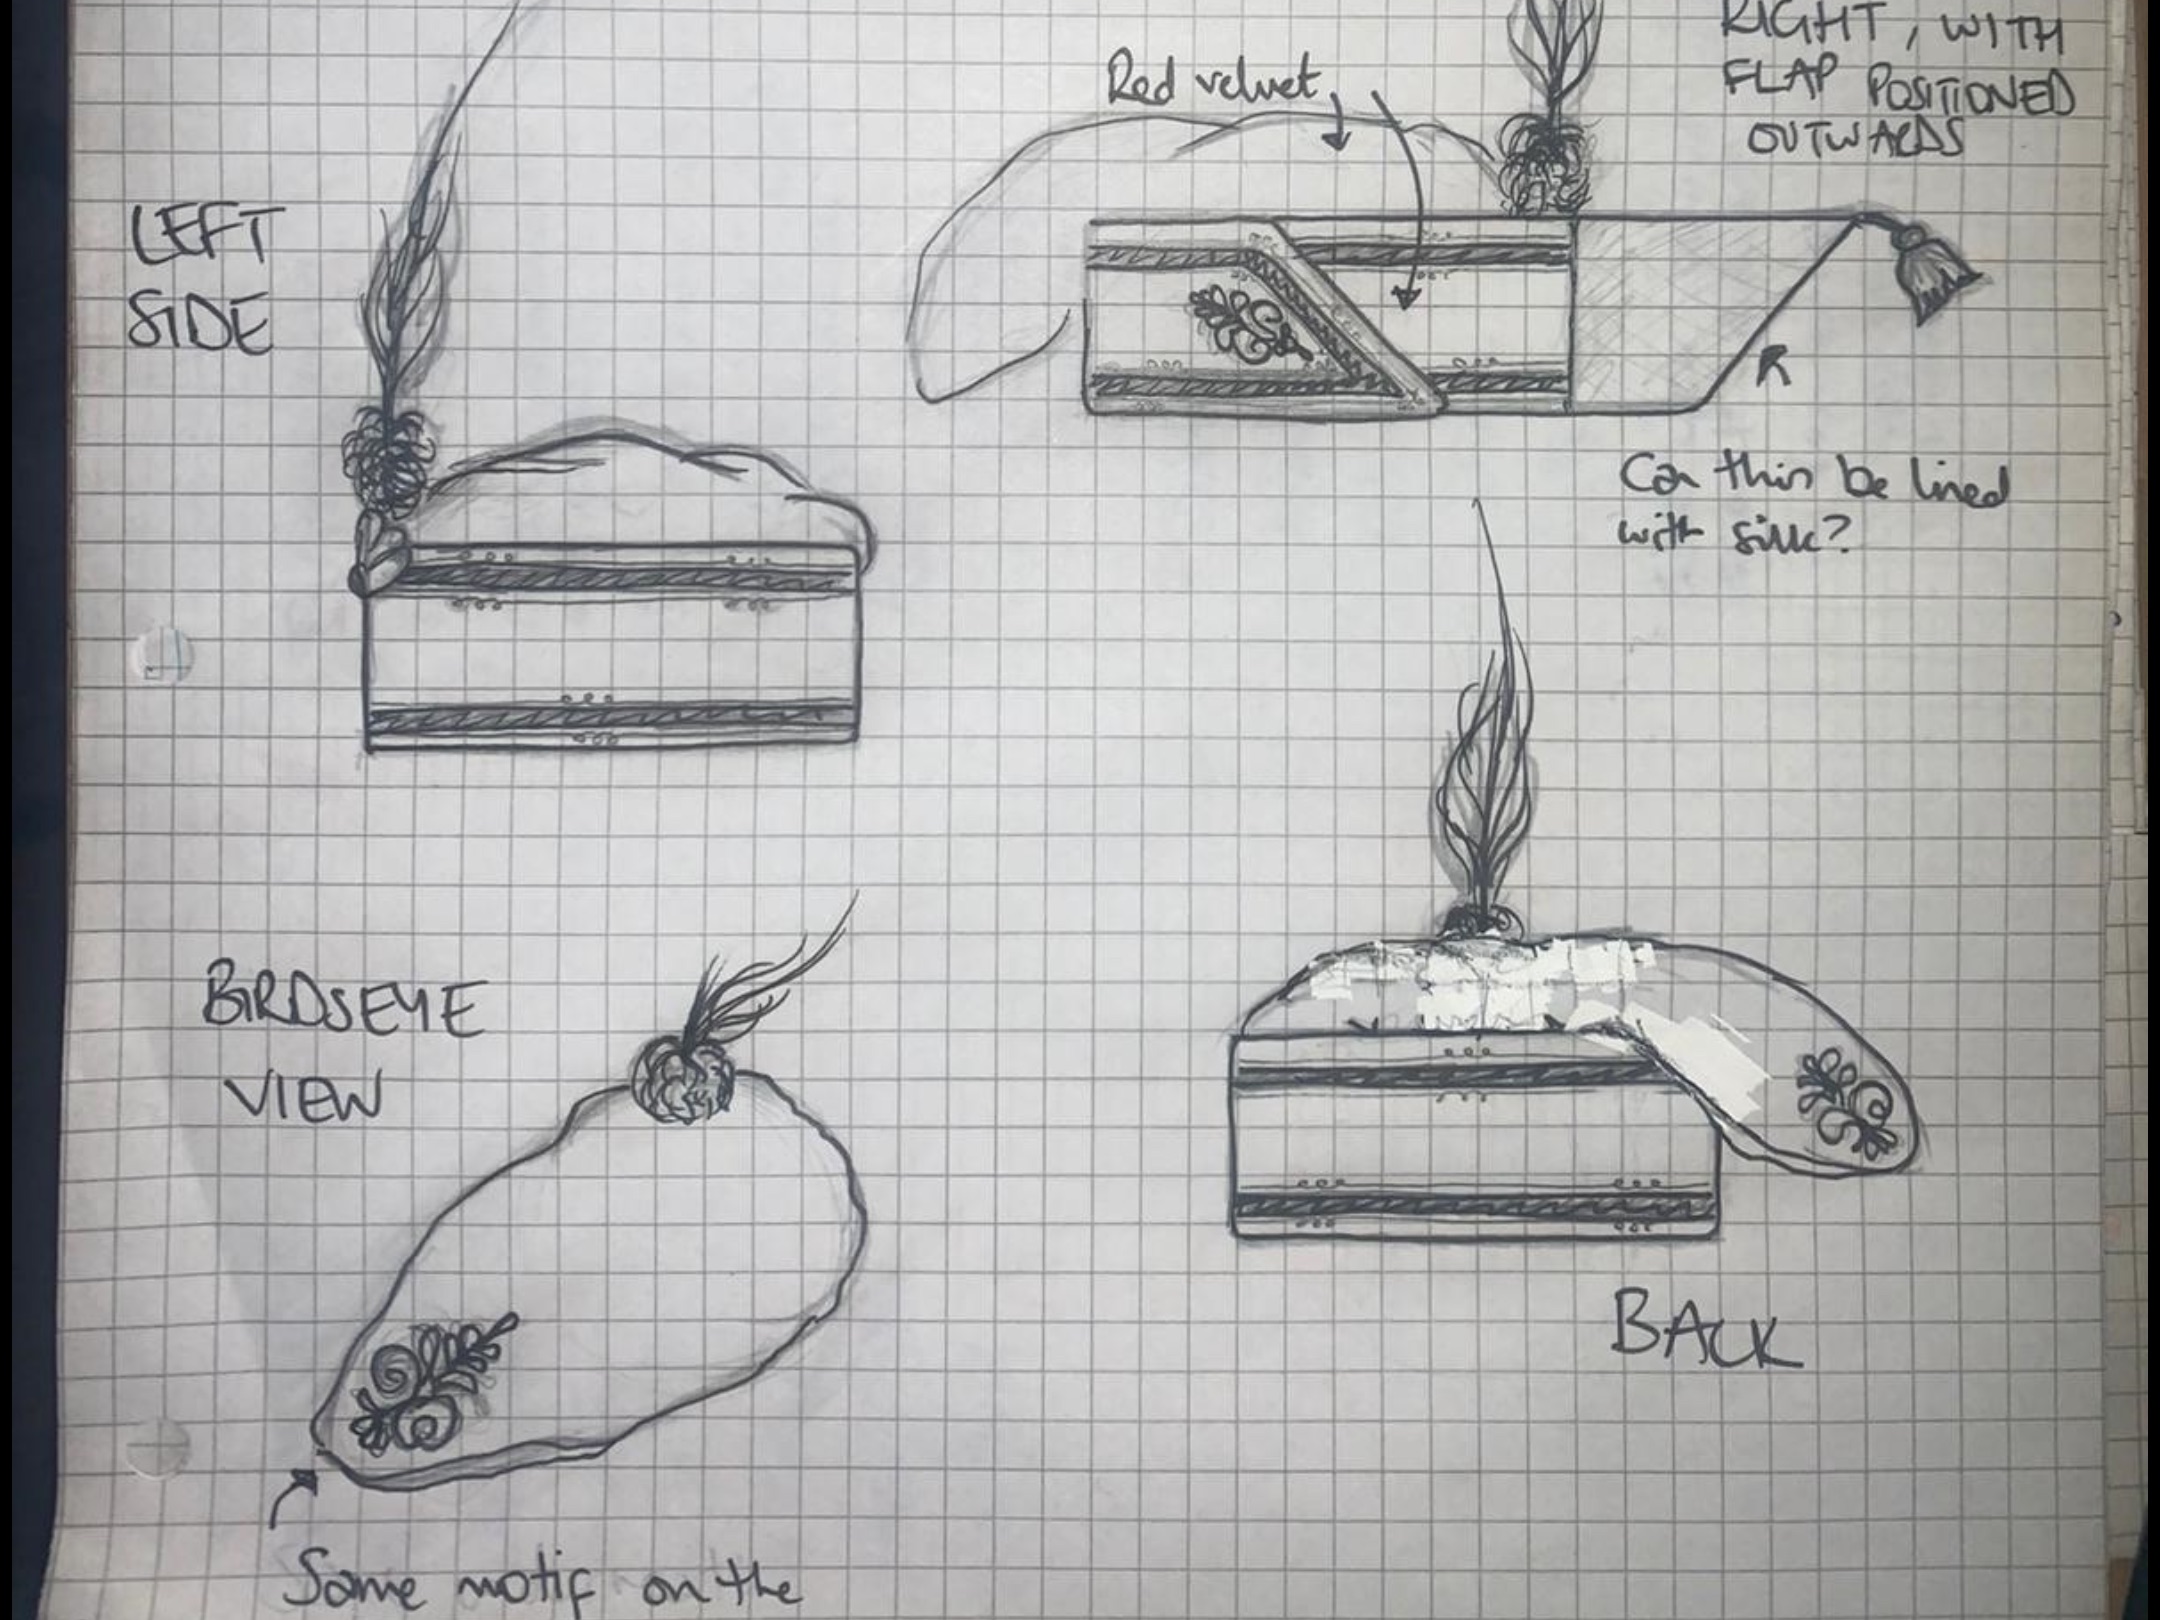 RIGHT, WITH
FLAP POSITIONED
OUTWARDS
Red velvet
LEFT
SIDE
Can this be lined
with silk?
BIRDSEYE
VIEW
BACK
Same motif on the